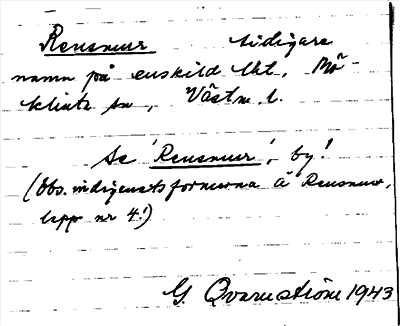 Rensmur tidigare
namn på enskild lht, Mö-
klinta sn, Västm. l.
Se 'Rensmur', by!
(Obs. indigenatsformerna å Rensmur,
lapp nr 4!)
G. Qvarnström 1943